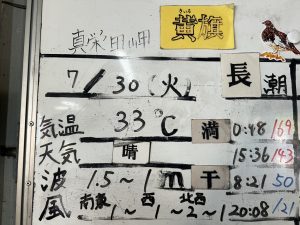 真栄田岬
きいろ
黄旗
7/30(火) 長潮
気温 33℃ 満 0:48 169
天気 晴 15:36 143
波 1.5~1m 干 8:21 50
風 南東 西 北西 20:08 121
1~1~2~1